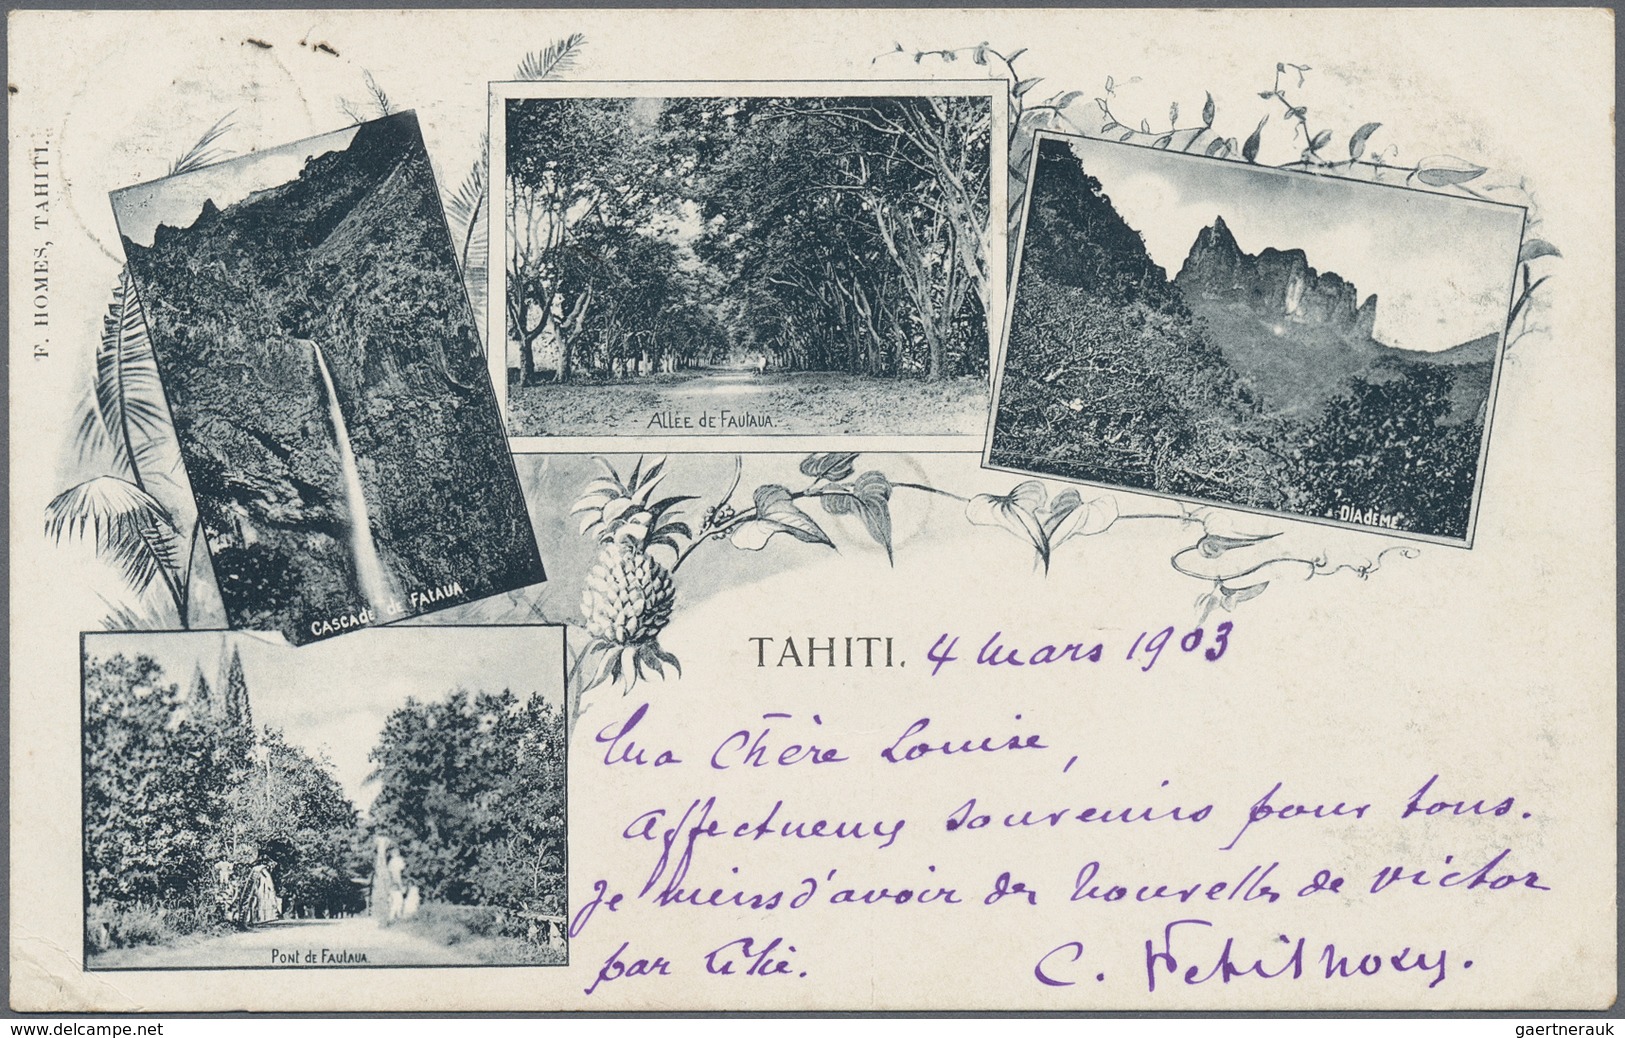 F. HOMES, TAHITI.
ALLÉE de FAUTAUA.
DIADEME.
CASCADE de FATAUA.
TAHITI. 4 Mars 1903
Ma Chère Louise,
Affectueux souvenirs pour tous.
Je viens d'avoir des nouvelles de Victor
par
C.
PONT de FAUTAUA.
www.delcampe.net
gaertnerauk